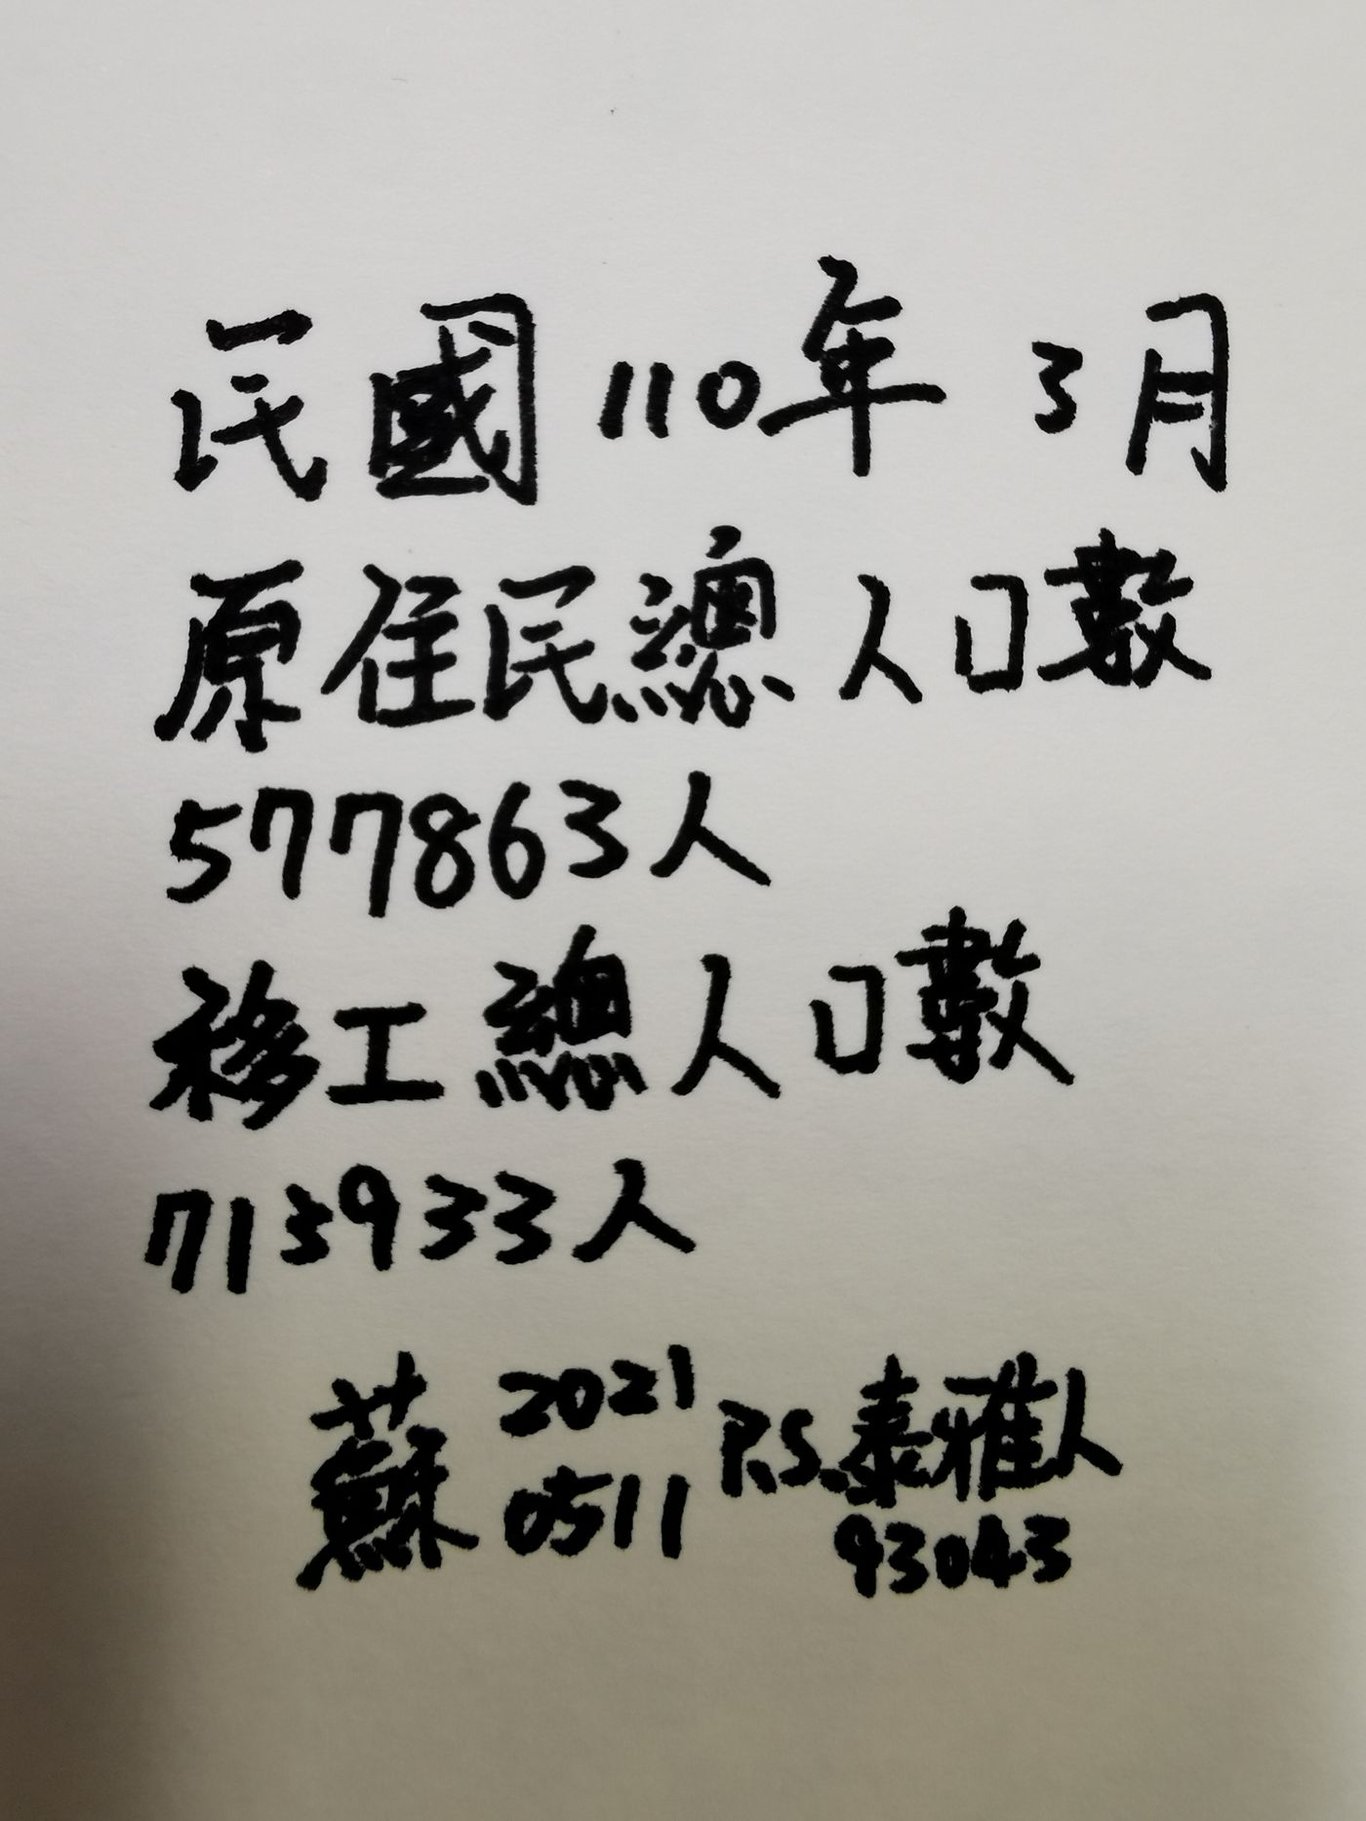 民國110年 3月
原住民總人口數
577863人
移工總人口數
713933人
蘇 2021
0511
P.S.泰雅人
93043